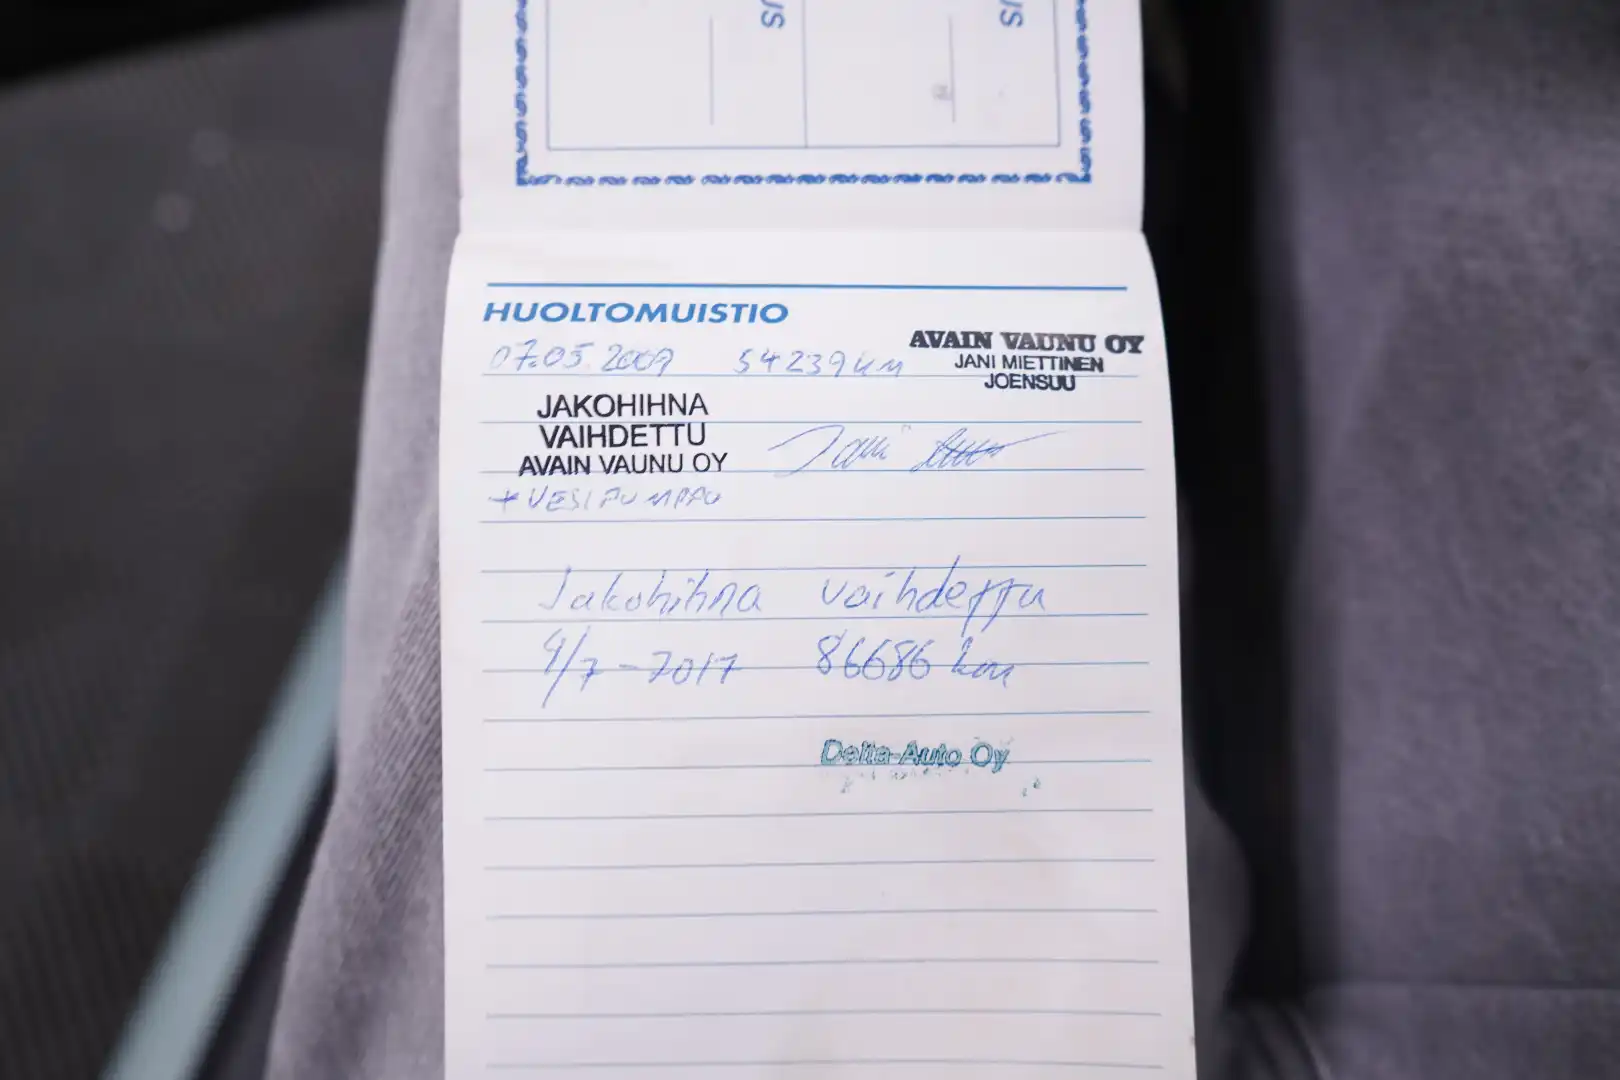 US US
HUOLTOMUISTIO
07.05.2009 54239 KM AVAIN VAUNU OY
JANI MIETTINEN
JOENSUU
JAKOHIHNA
VAIHDETTU
AVAIN VAUNU OY
Jani
+ VESIPUMPPU
Jakohihna vaihdettu
4/7-2017 86686 km
Delta-Auto Oy